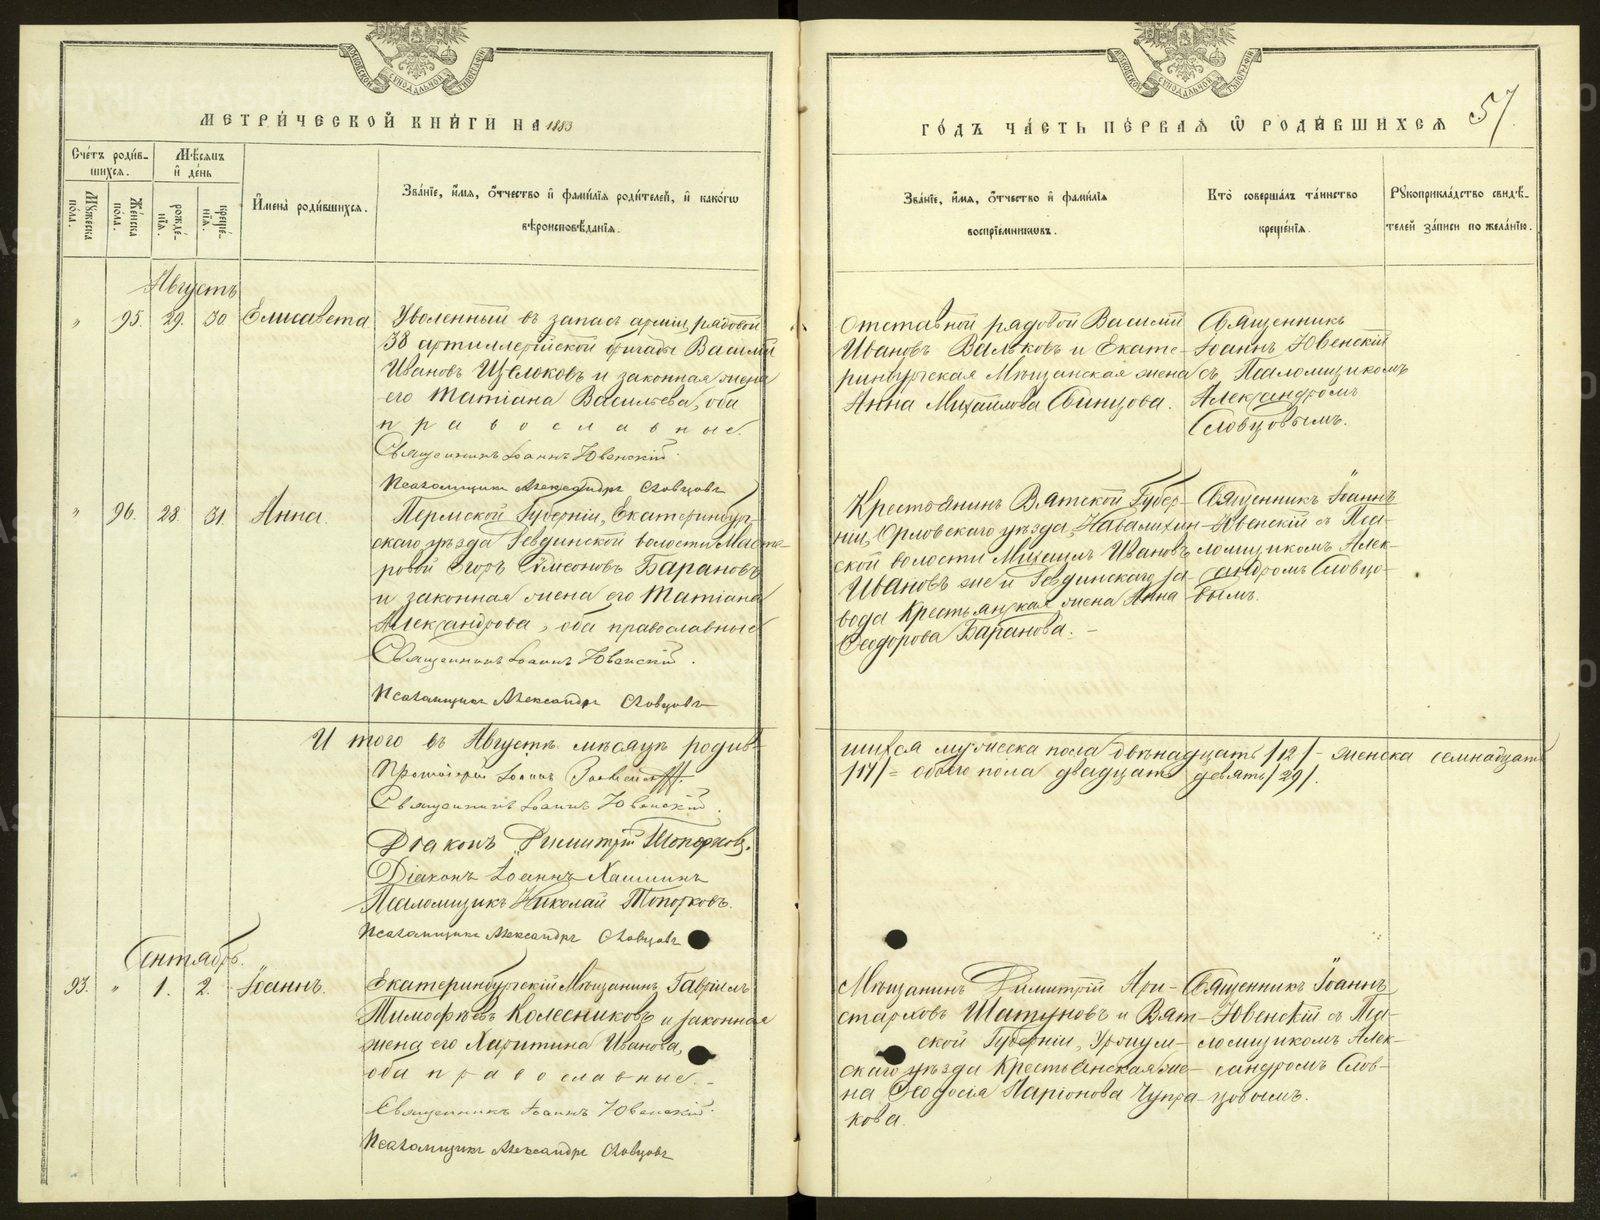 МОСКОВСКОЙ СѴНОДАЛЬНОЙ ТѴПОГРАФІИ
МЕТРИ́ЧЕСКОЙ КНИ́ГИ НА 1883
Сче́тъ роди́в-
шихся.
Мѣ́сяцъ
и҆ де́нь
Му́жеска по́ла.
Же́нска по́ла.
рожде́нїя.
креще́нїя.
И҆мена̀ роди́вшихся.
Зва́нїе, и҆́мя, ѻ҆́тчество и҆ фами́лїя роди́телей, и҆ како́гѡ
вѣроисповѣ́данїя.
Августъ
" 95. 29. 30 Елисавета
Уволенный въ запасъ арміи, рядовой
38 артиллерійской бригады Василій
Ивановъ и законная жена
его Татіана Васильева, оба
православные.
Священникъ Іоаннъ Ювенскій.
Псаломщикъ Александръ Словцовъ
" 96. 28. 31. Анна.
Пермской Губерніи, Екатеринбург-
скаго уѣзда Ревдинской волости Масте-
ровой Егоръ Сѵмеоновъ Барановъ
и законная жена его Татіана
Александрова, оба православные
Священникъ Іоаннъ Ювенскій.
Псаломщикъ Александръ Словцовъ
Итого въ Августѣ мѣсяцѣ родив-
Протоіерей Іоаннъ
Священникъ Іоаннъ Ювенскій.
Діаконъ Димитрій Топорковъ.
Діаконъ Іоаннъ
Псаломщикъ Николай Топорковъ.
Псаломщикъ Александръ Словцовъ
Сентябрь.
93. " 1. 2. Іоаннъ.
Екатеринбургскій Мѣщанинъ Гавріилъ
Тимофѣевъ Колесниковъ и законная
жена его Харитина Иванова,
оба православные.
Священникъ Іоаннъ Ювенскій.
Псаломщикъ Александръ Словцовъ
МОСКОВСКОЙ СѴНОДАЛЬНОЙ ТѴПОГРАФІИ
ГО́ДЪ ЧА́СТЬ ПЕ́РВАЯ Ѽ РОДИ́ВШИХСЯ
57.
Зва́нїе, и҆́мя, ѻ҆́тчество и҆ фами́лїя
воспрїе́мникѡвъ.
Кто̀ соверша́лъ та́инство
креще́нїя.
Рꙋкоприкла́дство свидѣ́-
телей за́писи по жела́нїю.
Отставной рядовой Василій
Ивановъ Вальковъ и Екате-
ринбургская Мѣщанская жена
Анна Михайлова Свинцова.
Священникъ
Іоаннъ Ювенскій
съ Псаломщикомъ
Александромъ
Словцовымъ.
Крестьянинъ Вятской Губер-
ніи, Орловскаго уѣзда,
ской волости Михаилъ Ивановъ
Ивановъ же и Ревдинскаго за-
вода Крестьянская жена Анна
Ѳеодорова Баранова. -
Священникъ Іоаннъ
Ювенскій съ Пса-
ломщикомъ Алек-
сандромъ Словцо-
вымъ.
шихся мужеска пола двѣнадцать /12/ - женска семнадцать
/17/ = обоего пола двадцать девять /29/.
Мѣщанинъ Димитрій Ари-
старховъ Шатуновъ и Вят-
ской Губерніи, Уржум-
скаго уѣзда Крестьянская же-
на Ѳеодосія Иларіонова Чупра-
кова.
Священникъ Іоаннъ
Ювенскій съ Пса-
ломщикомъ Алек-
сандромъ Слов-
цовымъ.